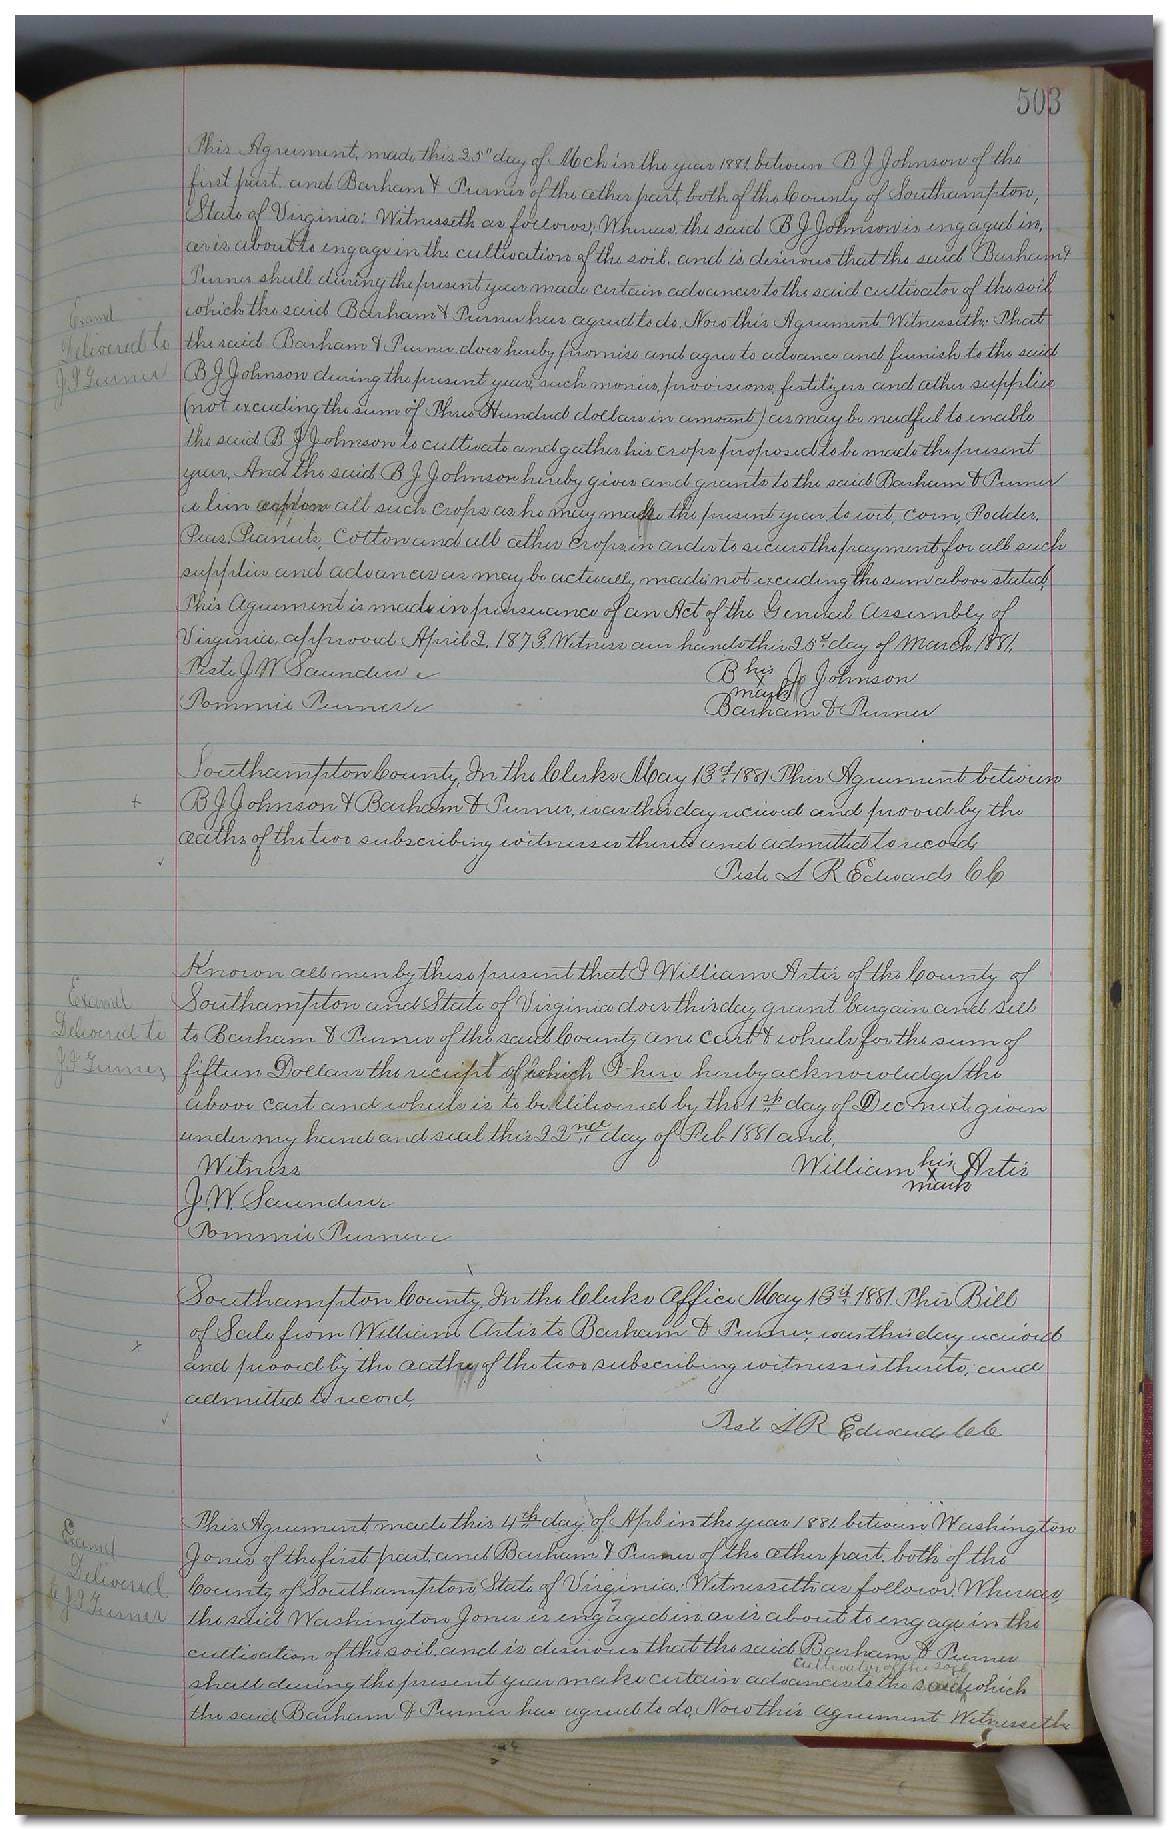 503
This Agreement, made this 25" day of Mch in the year 1881, between B J Johnson of the
first part. and Barham & Turner of the other part, both of the County of Southampton,
State of Virginia: Witnesseth as follows; Whereas, the said B J Johnson is engaged in,
or is about to engage in the cultivation of the soil, and is desirous that the said Barham &
Turner shall during the present year made certain advances to the said cultivator of the soil,
which the said Barham & Turner has agreed to do. Now this Agreement Witnesseth: That
the said Barham & Turner does hereby promise and agree to advance and furnish to the said
B J Johnson during the present year, such monies, provisions, fertilizers and other supplies
(not exceeding the sum of Three Hundred dollars in amount) as may be needful to enable
the said B J Johnson to cultivate and gather his crops proposed to be made the present
year. And the said B J Johnson hereby gives and grants to the said Barham & Turner
a lien upon all such crops as he may make the present year to wit, corn, Fodder,
Peas, Peanuts, Cotton and all other crops in order to secure the payment for all such
supplies and advances as may be actually made not exceeding the sum above stated,
This Agreement is made in pursuance of an Act of the General Assembly of
Virginia approved April 2, 1873. Witness our hands this 25th day of March 1881.
Teste J W Saunders
B his J Johnson
x
mark
Tommie Turner
Barham & Turner
Examd
Delivered to
J T Turner
Southampton County, In the Clerks May 13th 1881 This Agreement between
+
B J Johnson & Barham & Turner, was this day received and proved by the
oaths of the two subscribing witnesses thereto and admitted to record
Teste L R Edwards CC
Known all men by these present that I William Artis of the County of
Southampton and State of Virginia does this day grant bargain and sell
to Barham & Turner of the said County one cart & wheels for the sum of
fifteen Dollars the receipt of which I here hereby acknowledge the
above cart and wheels is to be delivered by the 1st day of Dec next given
under my hand and seal this 22nd day of Feb 1881 and,
Witness
William his Artis
x
mark
J. W. Saunders
Tommie Turner
Examd
Delivered to
J T Turner
Southampton County, In the Clerks Office May 13th 1881 This Bill
of Sale from William Artis to Barham & Turner, was this day received
x
and proved by the oaths of the two subscribing witnesses thereto, and
admitted to record,
Test L R Edwards CC
This Agreement, made this 4th day of Apl in the year 1881, between Washington
Jones of the first part, and Barham & Turner of the other part, both of the
County of Southampton, State of Virginia: Witnesseth as follows. Whereas,
the said Washington Jones is engaged in or is about to engage in the
cultivation of the soil, and is desirous that the said Barham & Turner
cultivator of the soil
shall during the present year make certain advances to the said which
the said Barham & Turner has agreed to do, Now this agreement Witnesseth
Examd
Delivered
to J T Turner